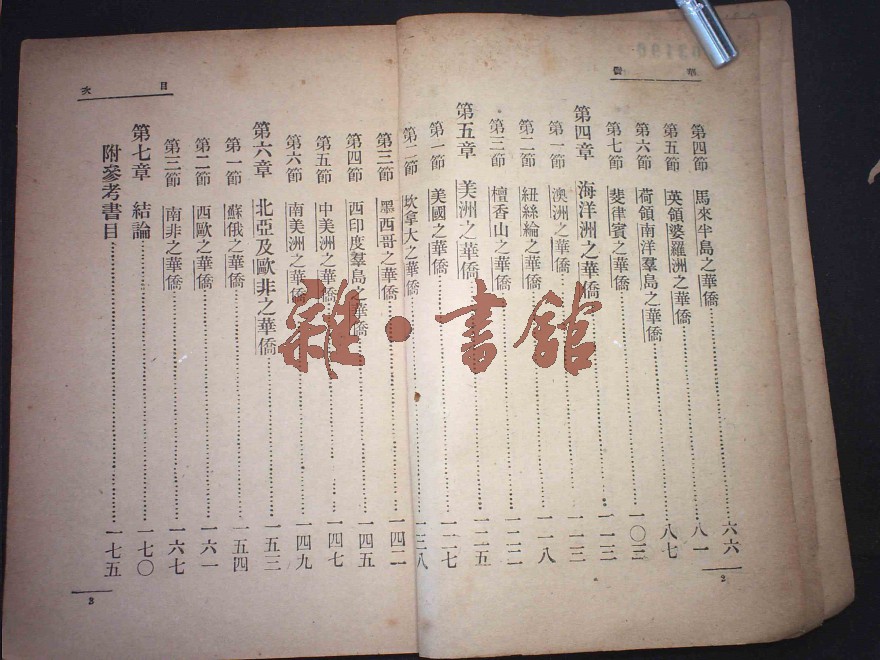 華僑
第四節 馬來半島之華僑……六六
第五節 英領婆羅洲之華僑……八一
第六節 荷領南洋羣島之華僑……八七
第七節 斐律賓之華僑……一〇三
第四章 海洋洲之華僑……一一三
第一節 澳洲之華僑……一一三
第二節 紐絲綸之華僑……一一八
第三節 檀香山之華僑……一二二
第五章 美洲之華僑……一二五
第一節 美國之華僑……一二七
2
目次
第二節 坎拿大之華僑……一三八
第三節 墨西哥之華僑……一四二
第四節 西印度羣島之華僑……一四五
第五節 中美洲之華僑……一四七
第六節 南美洲之華僑……一四九
第六章 北亞及歐非之華僑……一五三
第一節 蘇俄之華僑……一五四
第二節 西歐之華僑……一六一
第三節 南非之華僑……一六七
第七章 結論……一七〇
附參考書目……一七五
3
雜·書館